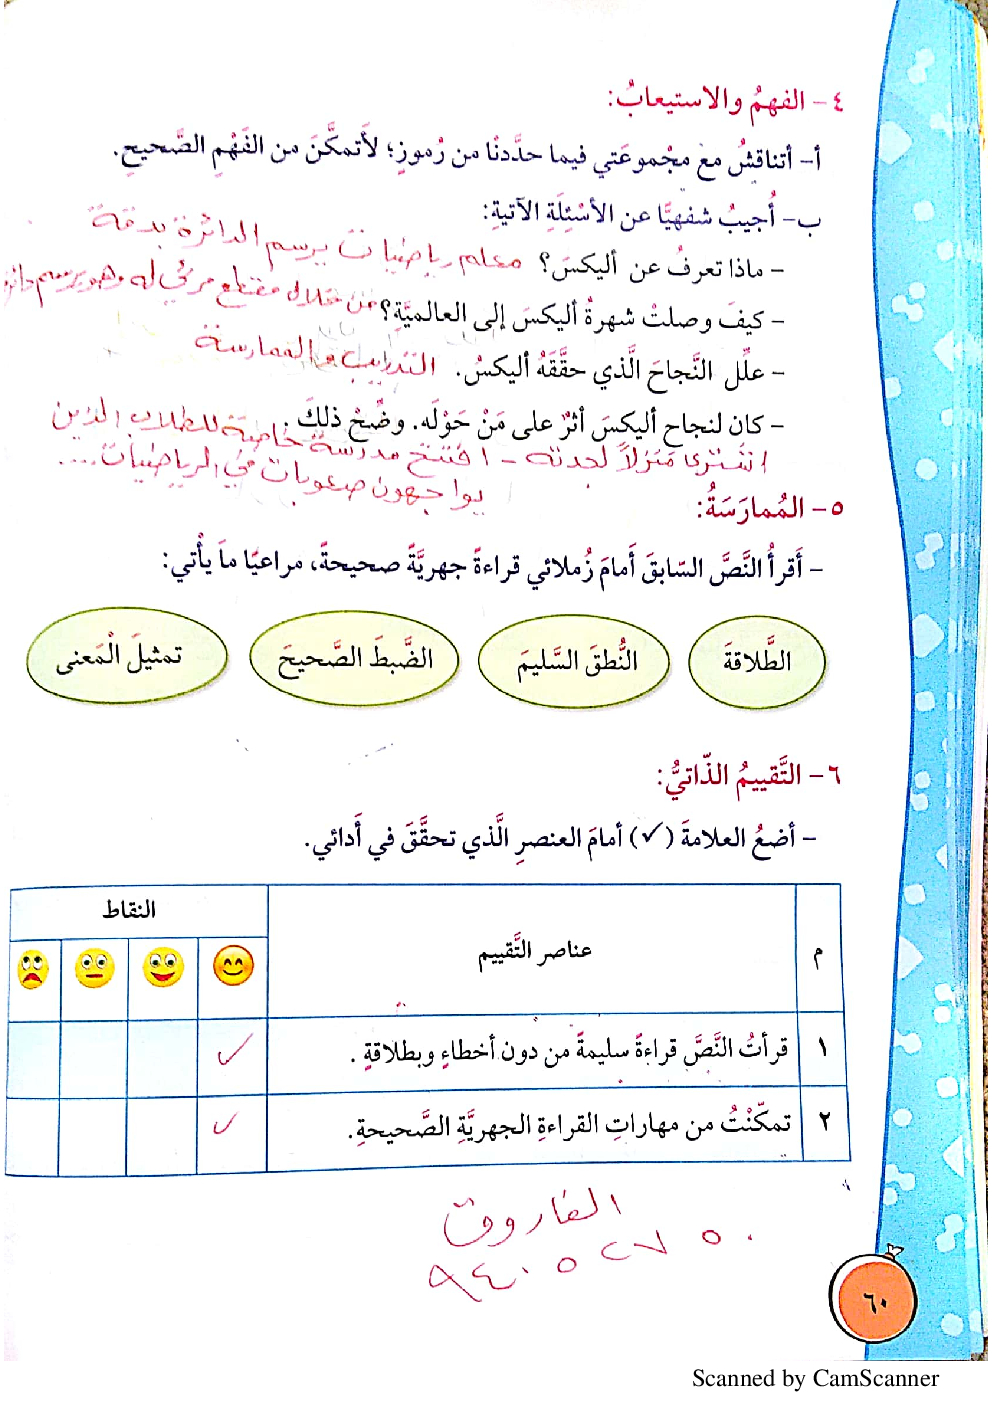 ٤- الفهمُ والاستيعابُ:
أ- أتناقشُ معَ مجْموعَتي فيما حدَّدنْا من رُموزٍ؛ لأَتمكَّنَ من الفَهْمِ الصَّحيحِ.
ب- أُجيبُ شفهيًّا عن الأسْئِلَةِ الآتيةِ:
- ماذا تعرفُ عن أليكسَ؟ معلم رياضيات يرسم الدائرة بدقة
- كيفَ وصلتْ شهرةُ أليكسَ إلى العالميَّةِ؟ من خلال مقطع مرئي له وهو يرسم دائرة
- علِّل النَّجاحَ الَّذي حقَّقَهُ أليكسُ. التدريب والممارسة
- كان لنجاحِ أليكسَ أثرٌ على مَنْ حَوْلَه. وضِّحْ ذلكَ.
اشترى منزلاً لجدته - افتتح مدرسة خاصة للطلاب الذين
يواجهون صعوبات في الرياضيات....
٥- المُمارَسَةُ:
- أَقرأُ النَّصَّ السّابقَ أَمامَ زُملائي قراءةً جهريَّةً صحيحةً، مراعيًا ما يأْتي:
الطَّلاقةَ
النُّطقَ السَّليمَ
الضَّبطَ الصَّحيحَ
تمثيلَ الْمَعنى
٦- التَّقييمُ الذّاتيُّ:
- أضعُ العلامةَ (✓) أمامَ العنصرِ الَّذي تحقَّقَ في أَدائي.
م
عناصر التَّقييم
النقاط
١ قرأتُ النَّصَّ قراءةً سليمةً من دون أخطاءٍ وبطلاقةٍ. ✓
٢ تمكّنْتُ من مهاراتِ القراءةِ الجهريَّةِ الصَّحيحةِ. ✓
الفاروق
٩٤٠٥٢٧٥٠
٦٠
Scanned by CamScanner